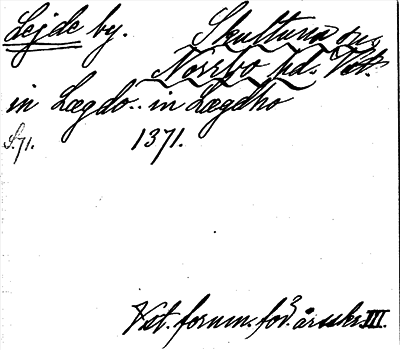 Lejde by. Skultuna sn.
Norrbo hd. Vstm.
in Lægdo.. in Lægdho
S. 71. 1371.
Vst. fornm. för. årsskr. III.